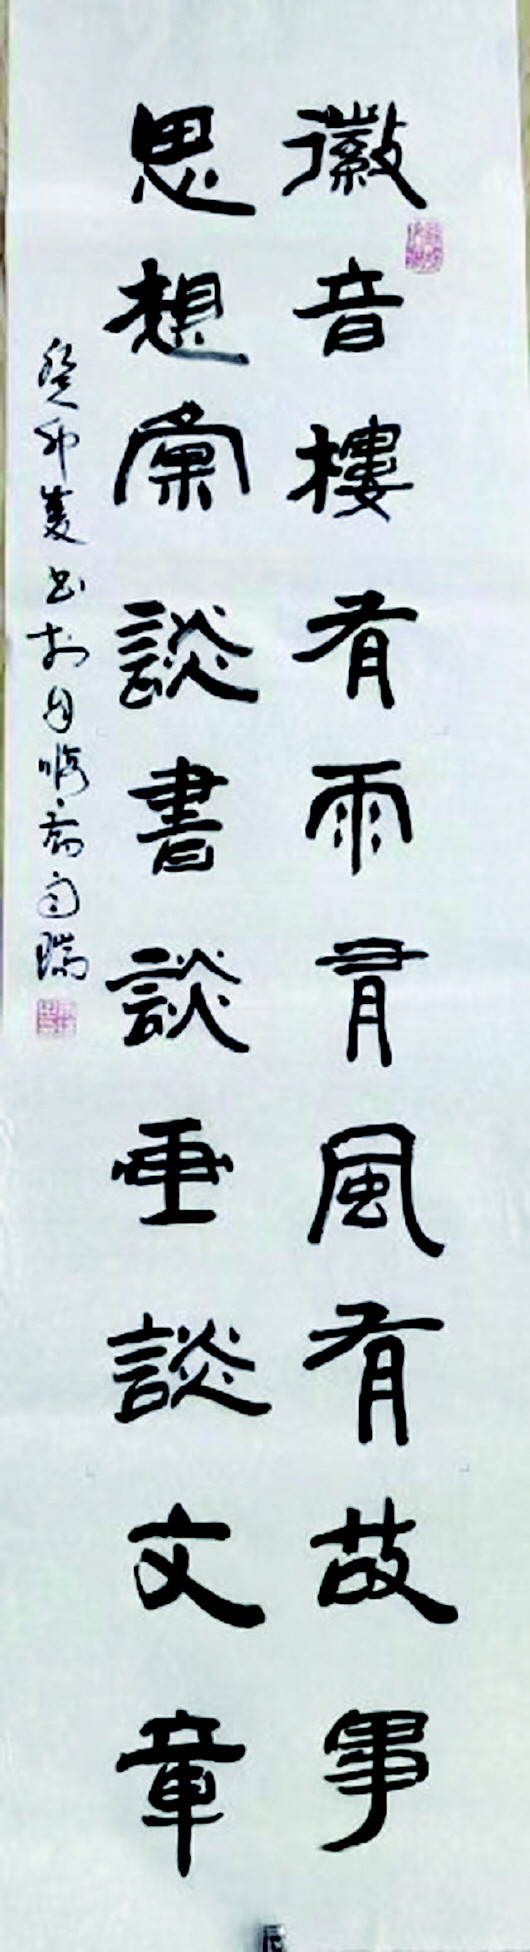 徽音樓有雨有風有故事
思想彙談書談畫談文章
癸卯夏书於自斋瑞